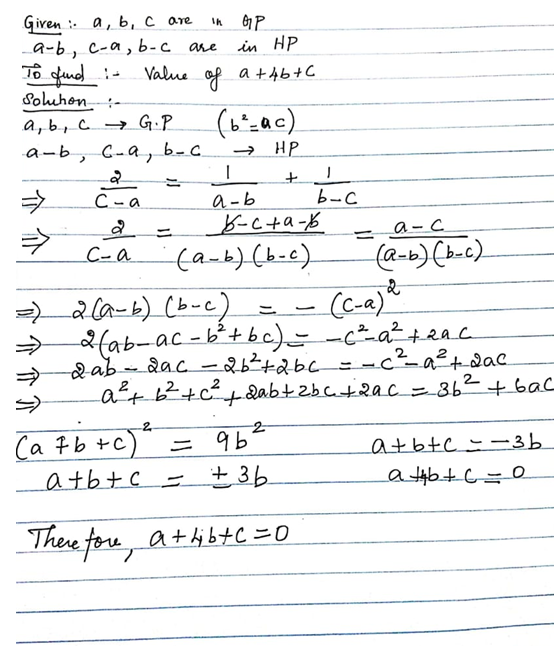 Given :- a, b, c are in GP
a-b, c-a, b-c are in HP
To find :- Value of a+4b+c
Solution :-
a, b, c → G.P (b²=ac)
a-b, c-a, b-c → HP
⇒ 2/(c-a) = 1/(a-b) + 1/(b-c)
⇒ 2/(c-a) = (b-c+a-b)/((a-b)(b-c)) = (a-c)/((a-b)(b-c))
⇒ 2(a-b)(b-c) = -(c-a)²
⇒ 2(ab-ac-b²+bc) = -c²-a²+2ac
⇒ 2ab-2ac-2b²+2bc = -c²-a²+2ac
⇒ a²+b²+c²+2ab+2bc+2ac = 3b²+6ac
(a+b+c)² = 9b² a+b+c=-3b
a+b+c = ±3b a+4b+c=0
Therefore, a+4b+c=0